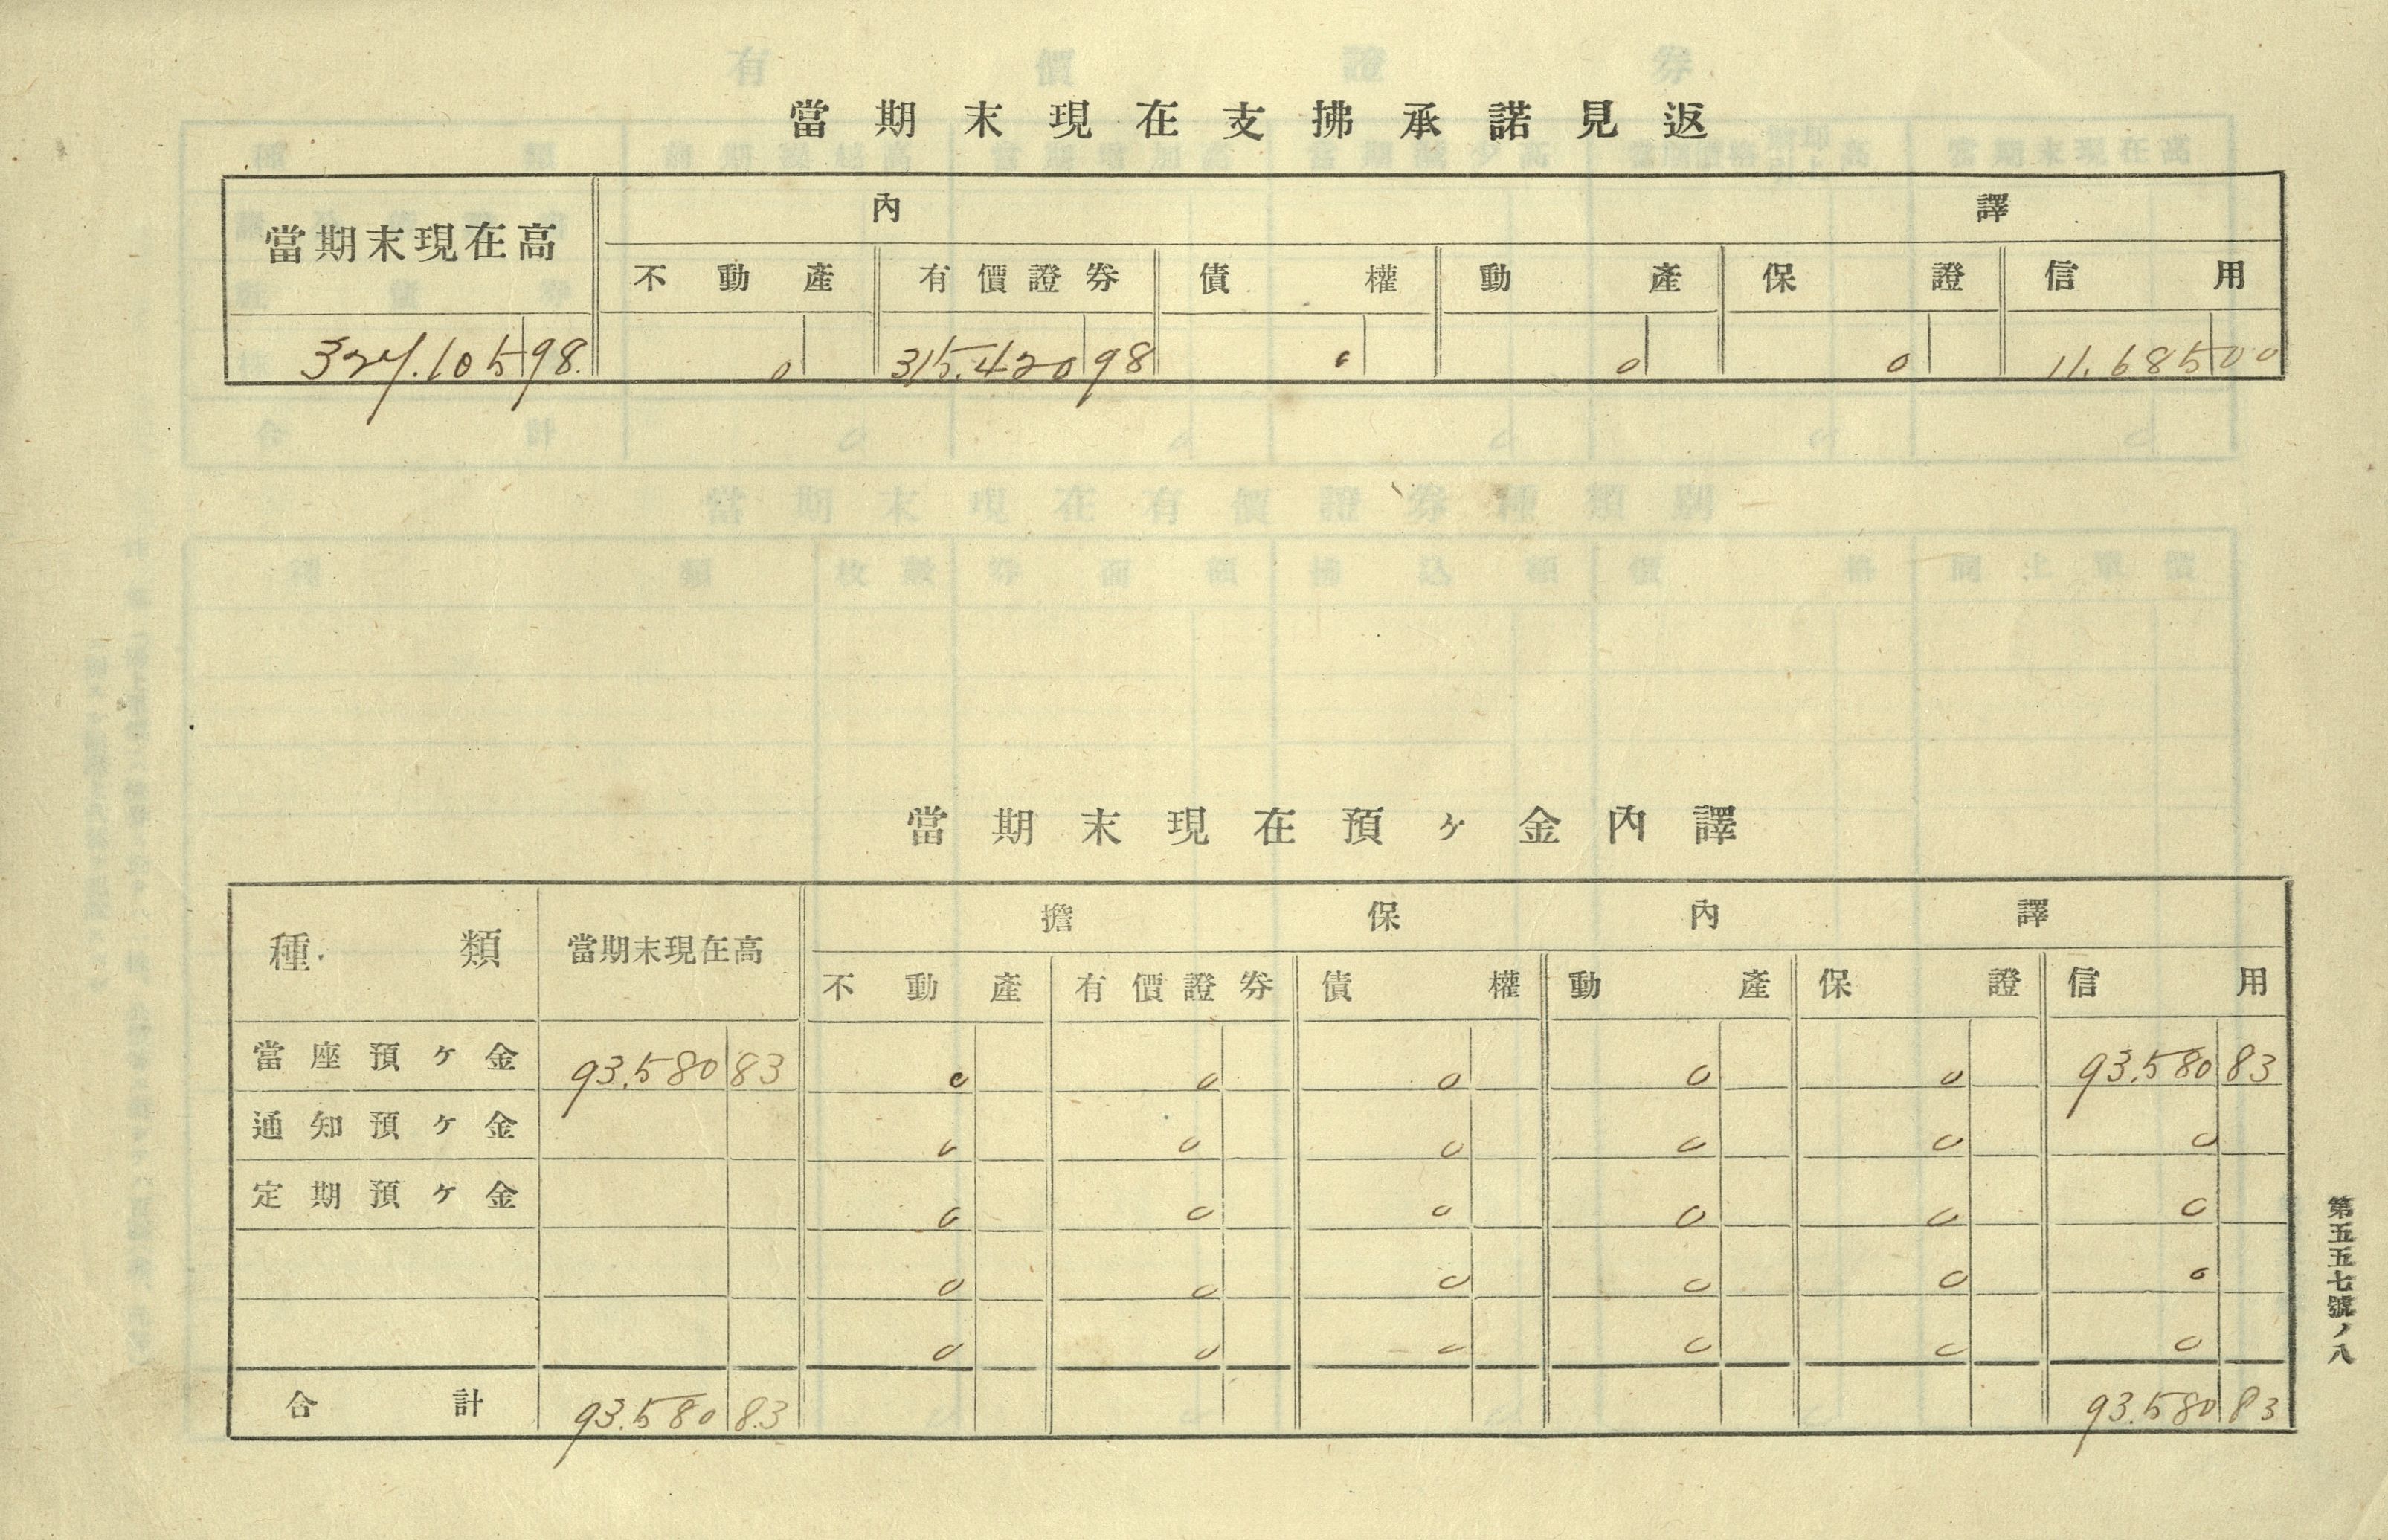 當期末現在支拂承諾見返
當期末現在高 內譯
不動產 有價證券 債權 動產 保證 信用
327.105 98. 0 315.420 98 0 0 0 11.685 00
當期末現在預ヶ金內譯
種類 當期末現在高 擔保內譯
不動產 有價證券 債權 動產 保證 信用
當座預ヶ金 93.580 83 0 0 0 0 0 93.580 83
通知預ヶ金 0 0 0 0 0 0
定期預ヶ金 0 0 0 0 0 0
0 0 0 0 0 0
0 0 0 0 0 0
合計 93.580 83 93.580 83
第五五七號ノ八